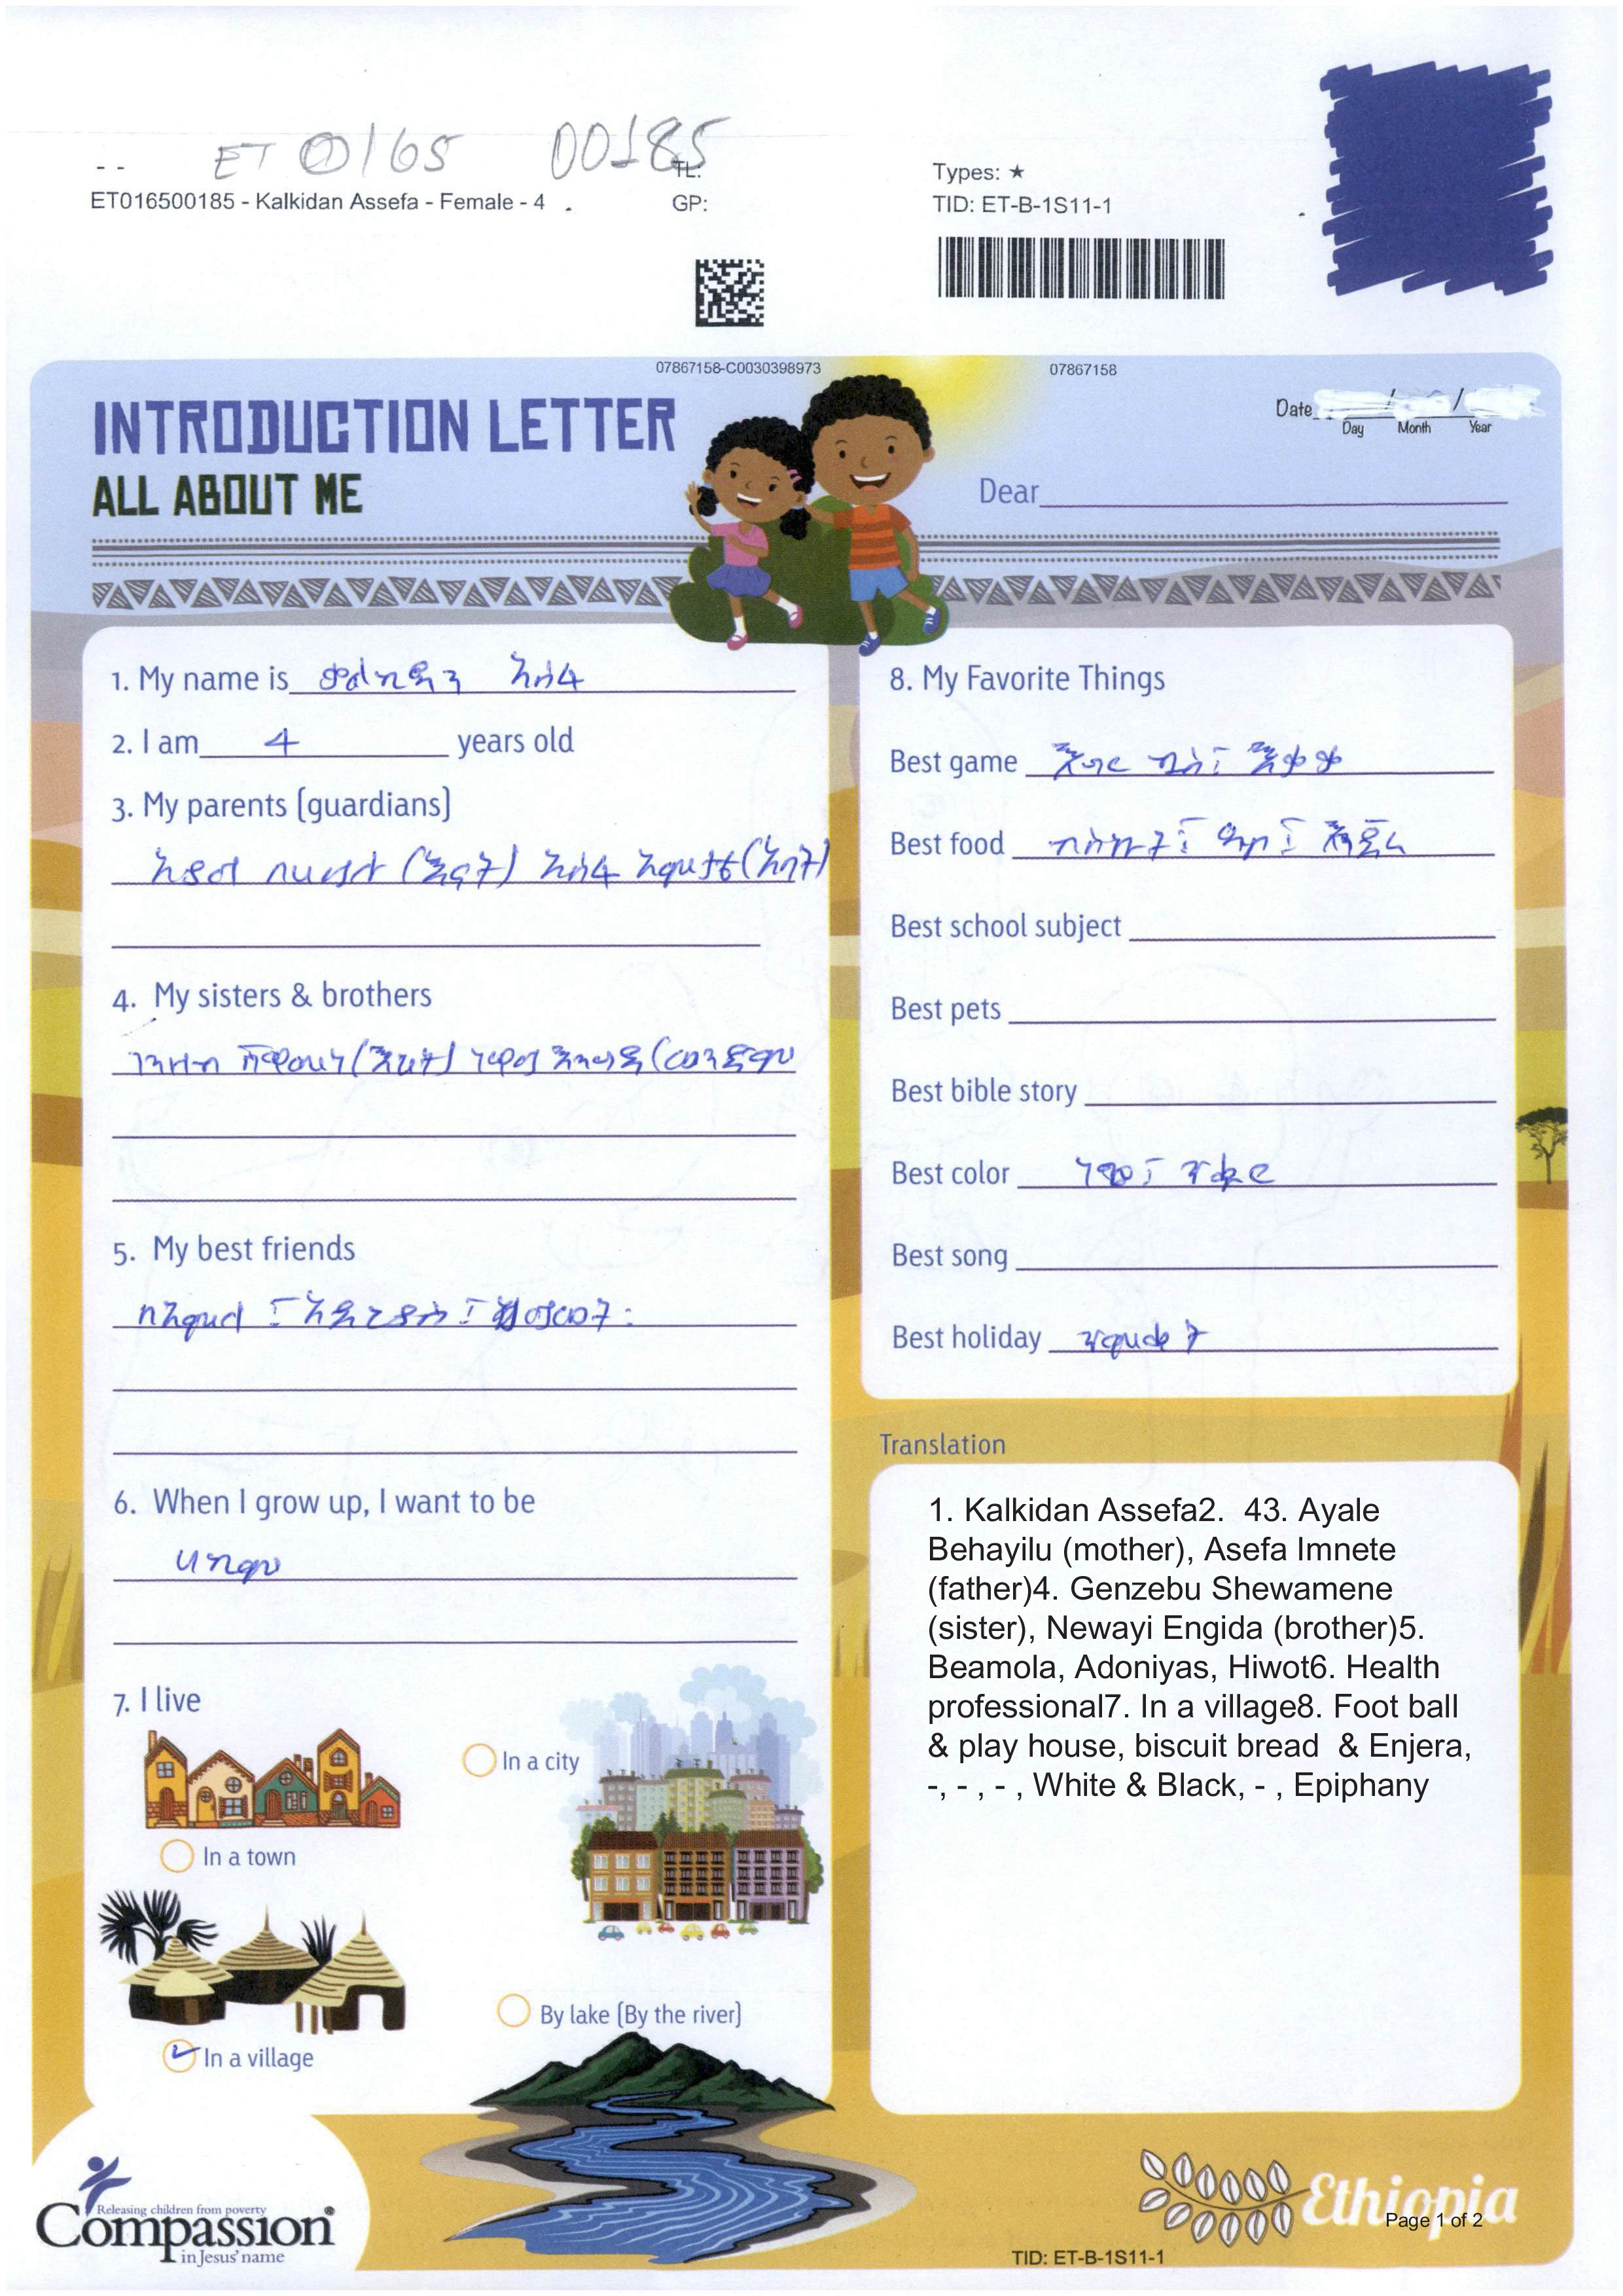 ET 0165 00185
- -
TL:
ET016500185 - Kalkidan Assefa - Female - 4
GP:
Types: ★
TID: ET-B-1S11-1
07867158-C0030398973
07867158
INTRODUCTION LETTER
ALL ABOUT ME
Date / /
Day Month Year
Dear
1. My name is ቃልኪዳን አሰፋ
2. I am 4 years old
3. My parents (guardians)
አያል በሀይሉ (እናት) አሰፋ (አባት)
4. My sisters & brothers
ገንዘቡ (እህት) ነዋይ እንግዳ (ወንድም
5. My best friends
አዶኒያስ ፤ ህይወት
6. When I grow up, I want to be
ሀኪም
7. I live
In a city
In a town
By lake (By the river)
In a village
8. My Favorite Things
Best game እግር ኳስ ፤ እቃቃ
Best food ብስኩት ፤ ዳቦ ፤ እንጀራ
Best school subject
Best pets
Best bible story
Best color ነጭ ፤ ጥቁር
Best song
Best holiday ጥምቀት
Translation
1. Kalkidan Assefa2. 43. Ayale
Behayilu (mother), Asefa Imnete
(father)4. Genzebu Shewamene
(sister), Newayi Engida (brother)5.
Beamola, Adoniyas, Hiwot6. Health
professional7. In a village8. Foot ball
& play house, biscuit bread & Enjera,
-, - , - , White & Black, - , Epiphany
Releasing children from poverty
Compassion
in Jesus' name
Ethiopia
Page 1 of 2
TID: ET-B-1S11-1